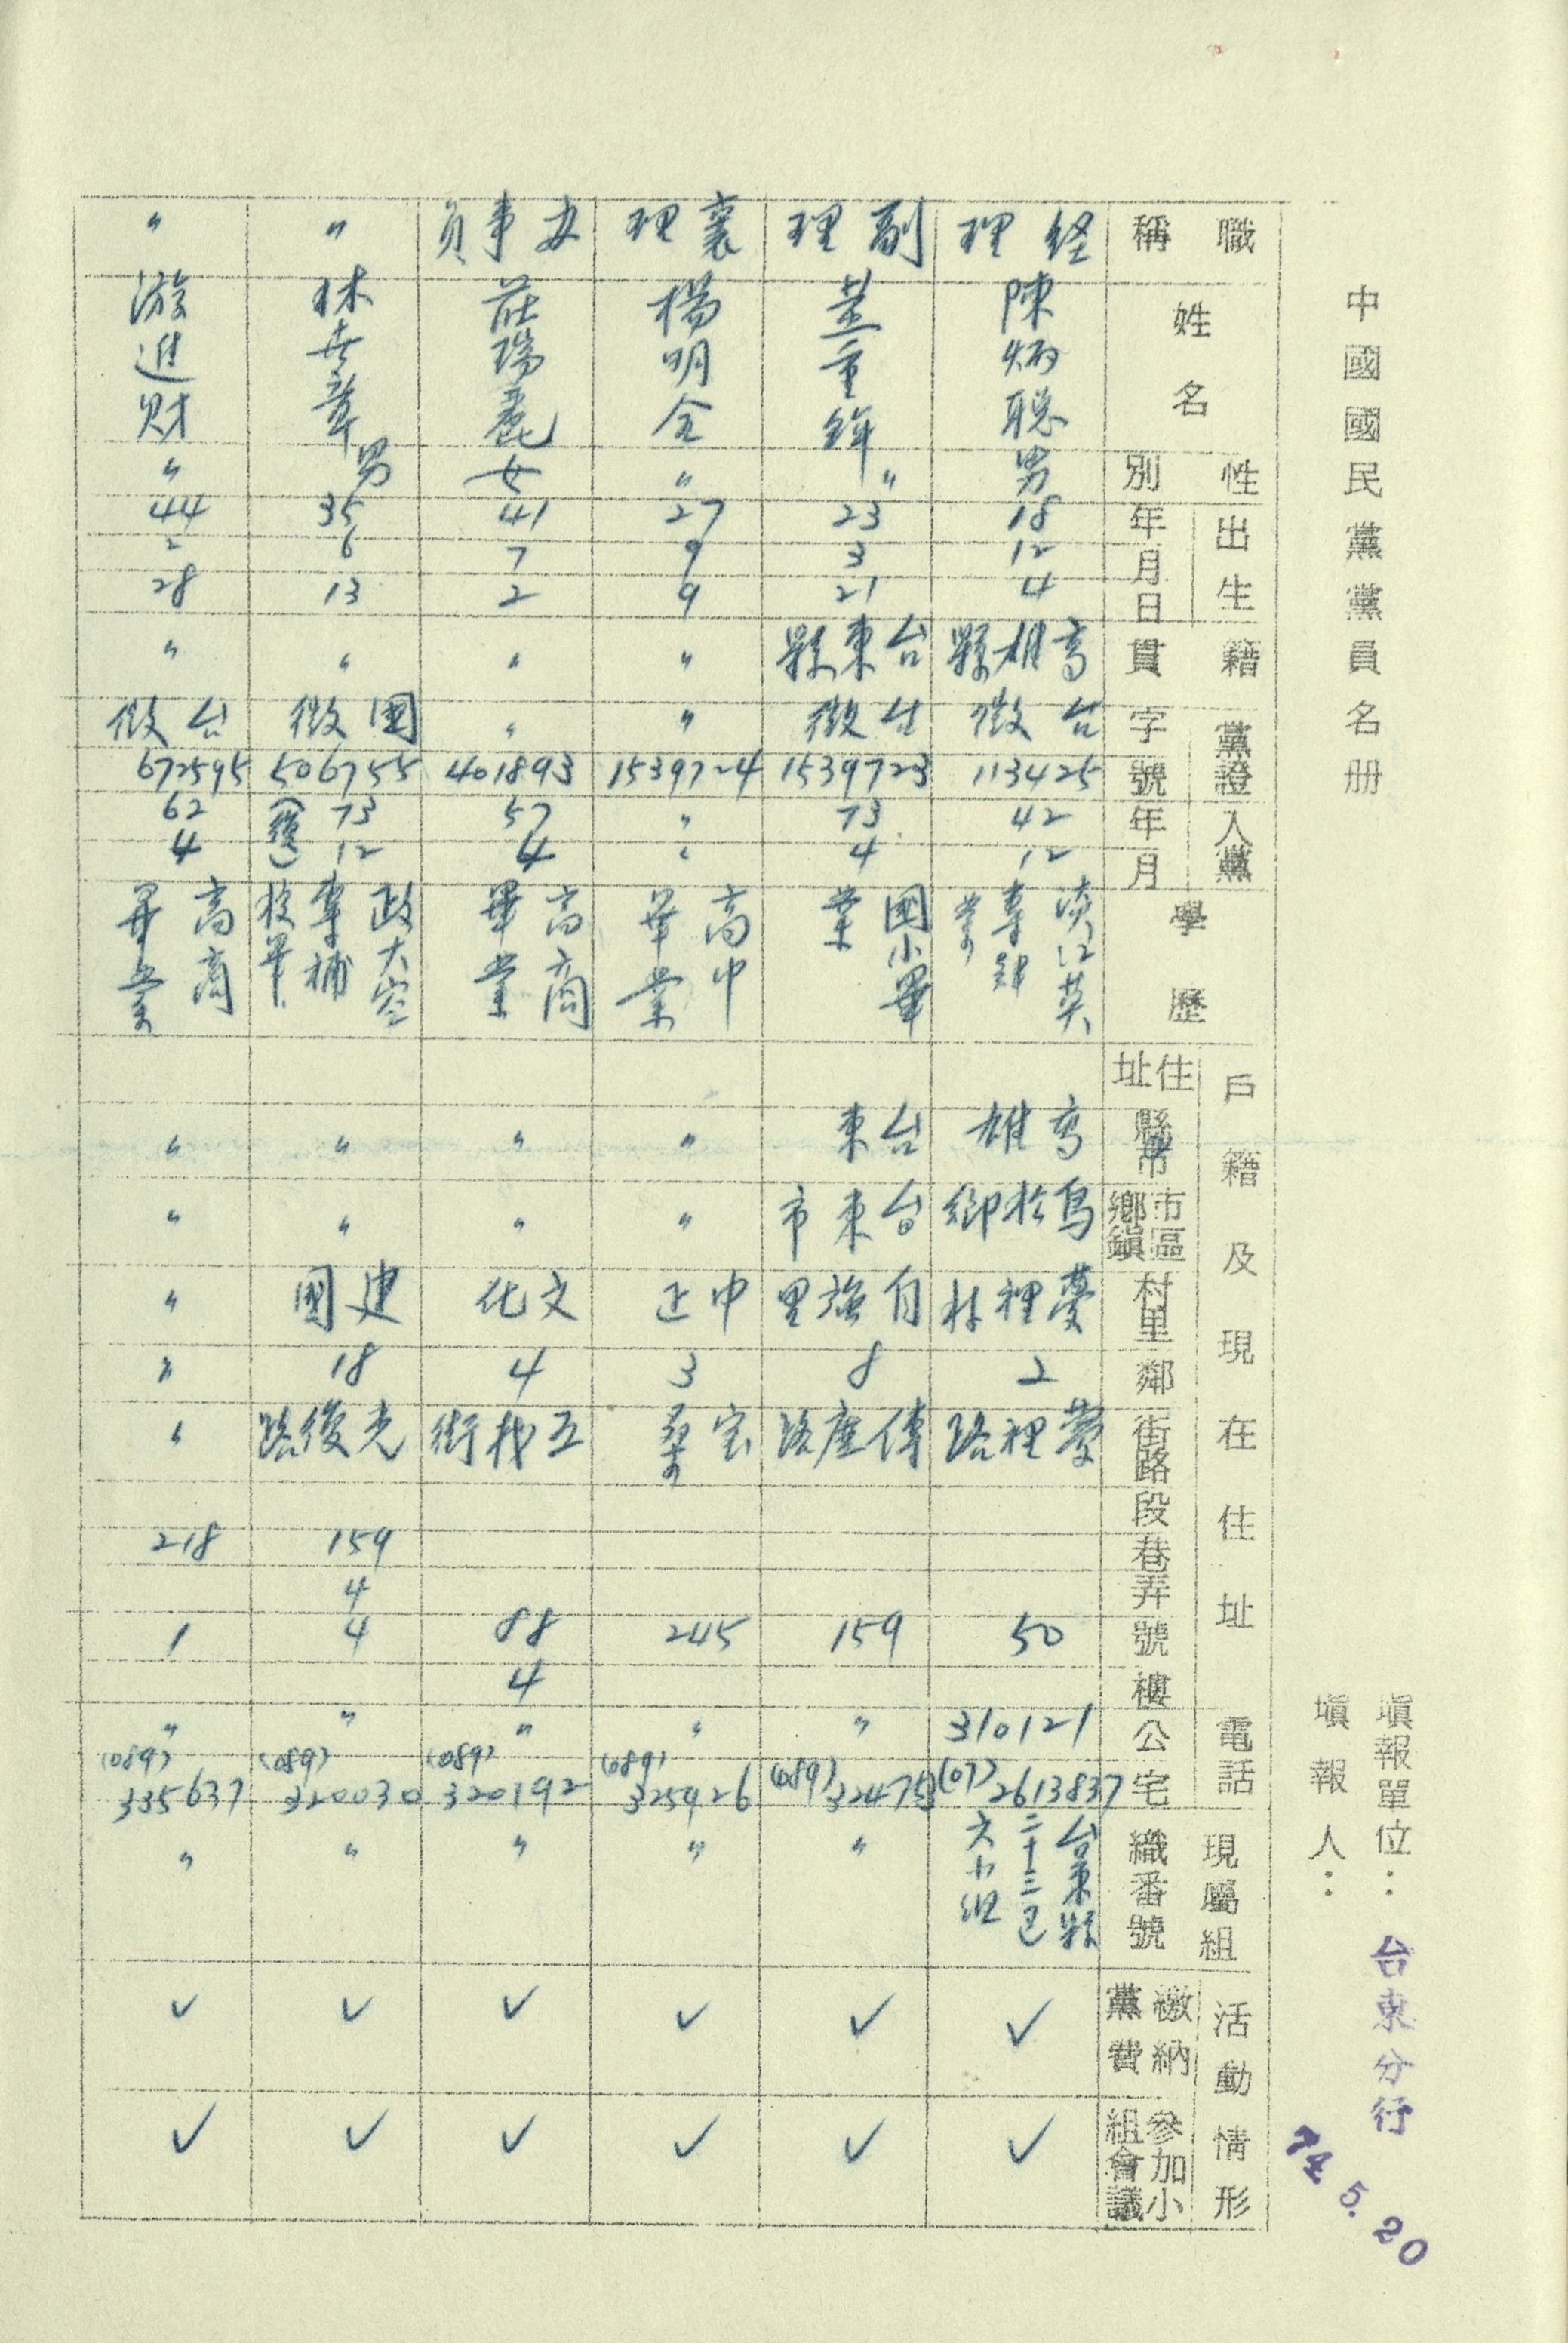 中國國民黨黨員名册
填報單位：台東分行
填報人：
74. 5. 20
職稱 姓名 性別 出生年月日 籍貫 黨證字號 入黨年月 學歷 戶籍及現在住址 住址 縣市 鄉鎮市區 村里 鄰 街路 段 巷 弄 號 樓 電話 公 宅 現屬組織番號 活動情形 繳納黨費 參加小組會議
経理 陳炳聡 男 18 12 4 高雄縣 台徵 113425 42 12 淡江英專畢業 高雄 鳥松鄉 夢裡村 2 夢裡路 50 310121 (07)2613837 台東縣二十三区六小组 ✓ ✓
副理 重鋅 〃 23 3 21 台東縣 台徵 1539723 73 4 國小畢業 台東 台東市 自強里 8 傳廣路 159 〃 (089)324755 〃 ✓ ✓
襄理 楊明全 〃 27 9 9 〃 〃 1539724 〃 〃 高中畢業 〃 〃 中正 3 宝桑 245 〃 (089)325926 〃 ✓ ✓
办事員 莊瑞麗 女 41 7 2 〃 〃 401893 57 4 高商畢業 〃 〃 文化 4 五权街 88 4 〃 (089)320192 〃 ✓ ✓
〃 林章 男 35 6 13 〃 國徵 506755 73 12 (復) 政大空專補校畢 〃 〃 建國 18 光復路 159 4 4 〃 (089)320030 〃 ✓ ✓
〃 游進财 〃 44 2 28 〃 台徵 672595 62 4 高商畢業 〃 〃 〃 〃 〃 218 1 〃 (089)335637 〃 ✓ ✓